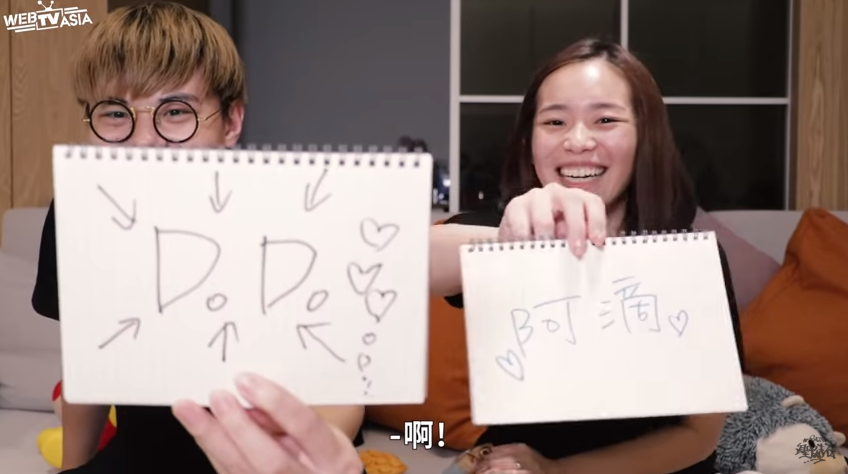 WEB TV ASIA
D. D.
阿滴
-啊!